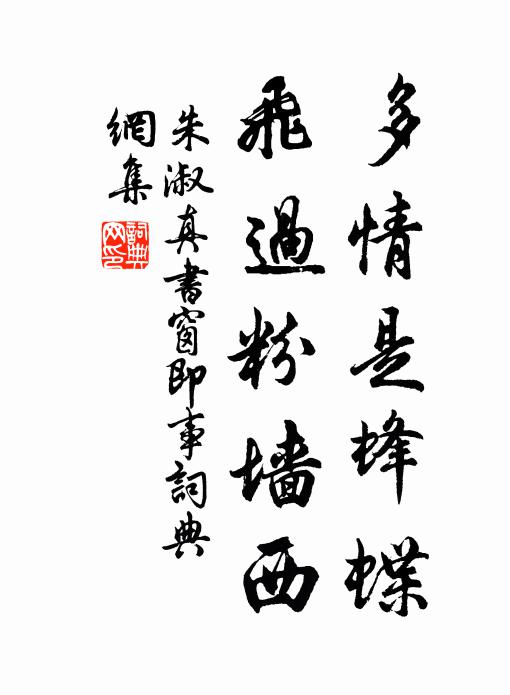 多情是蜂蝶
飛過粉墙西
朱淑真書窗即事詞典
網集
詞典
网印